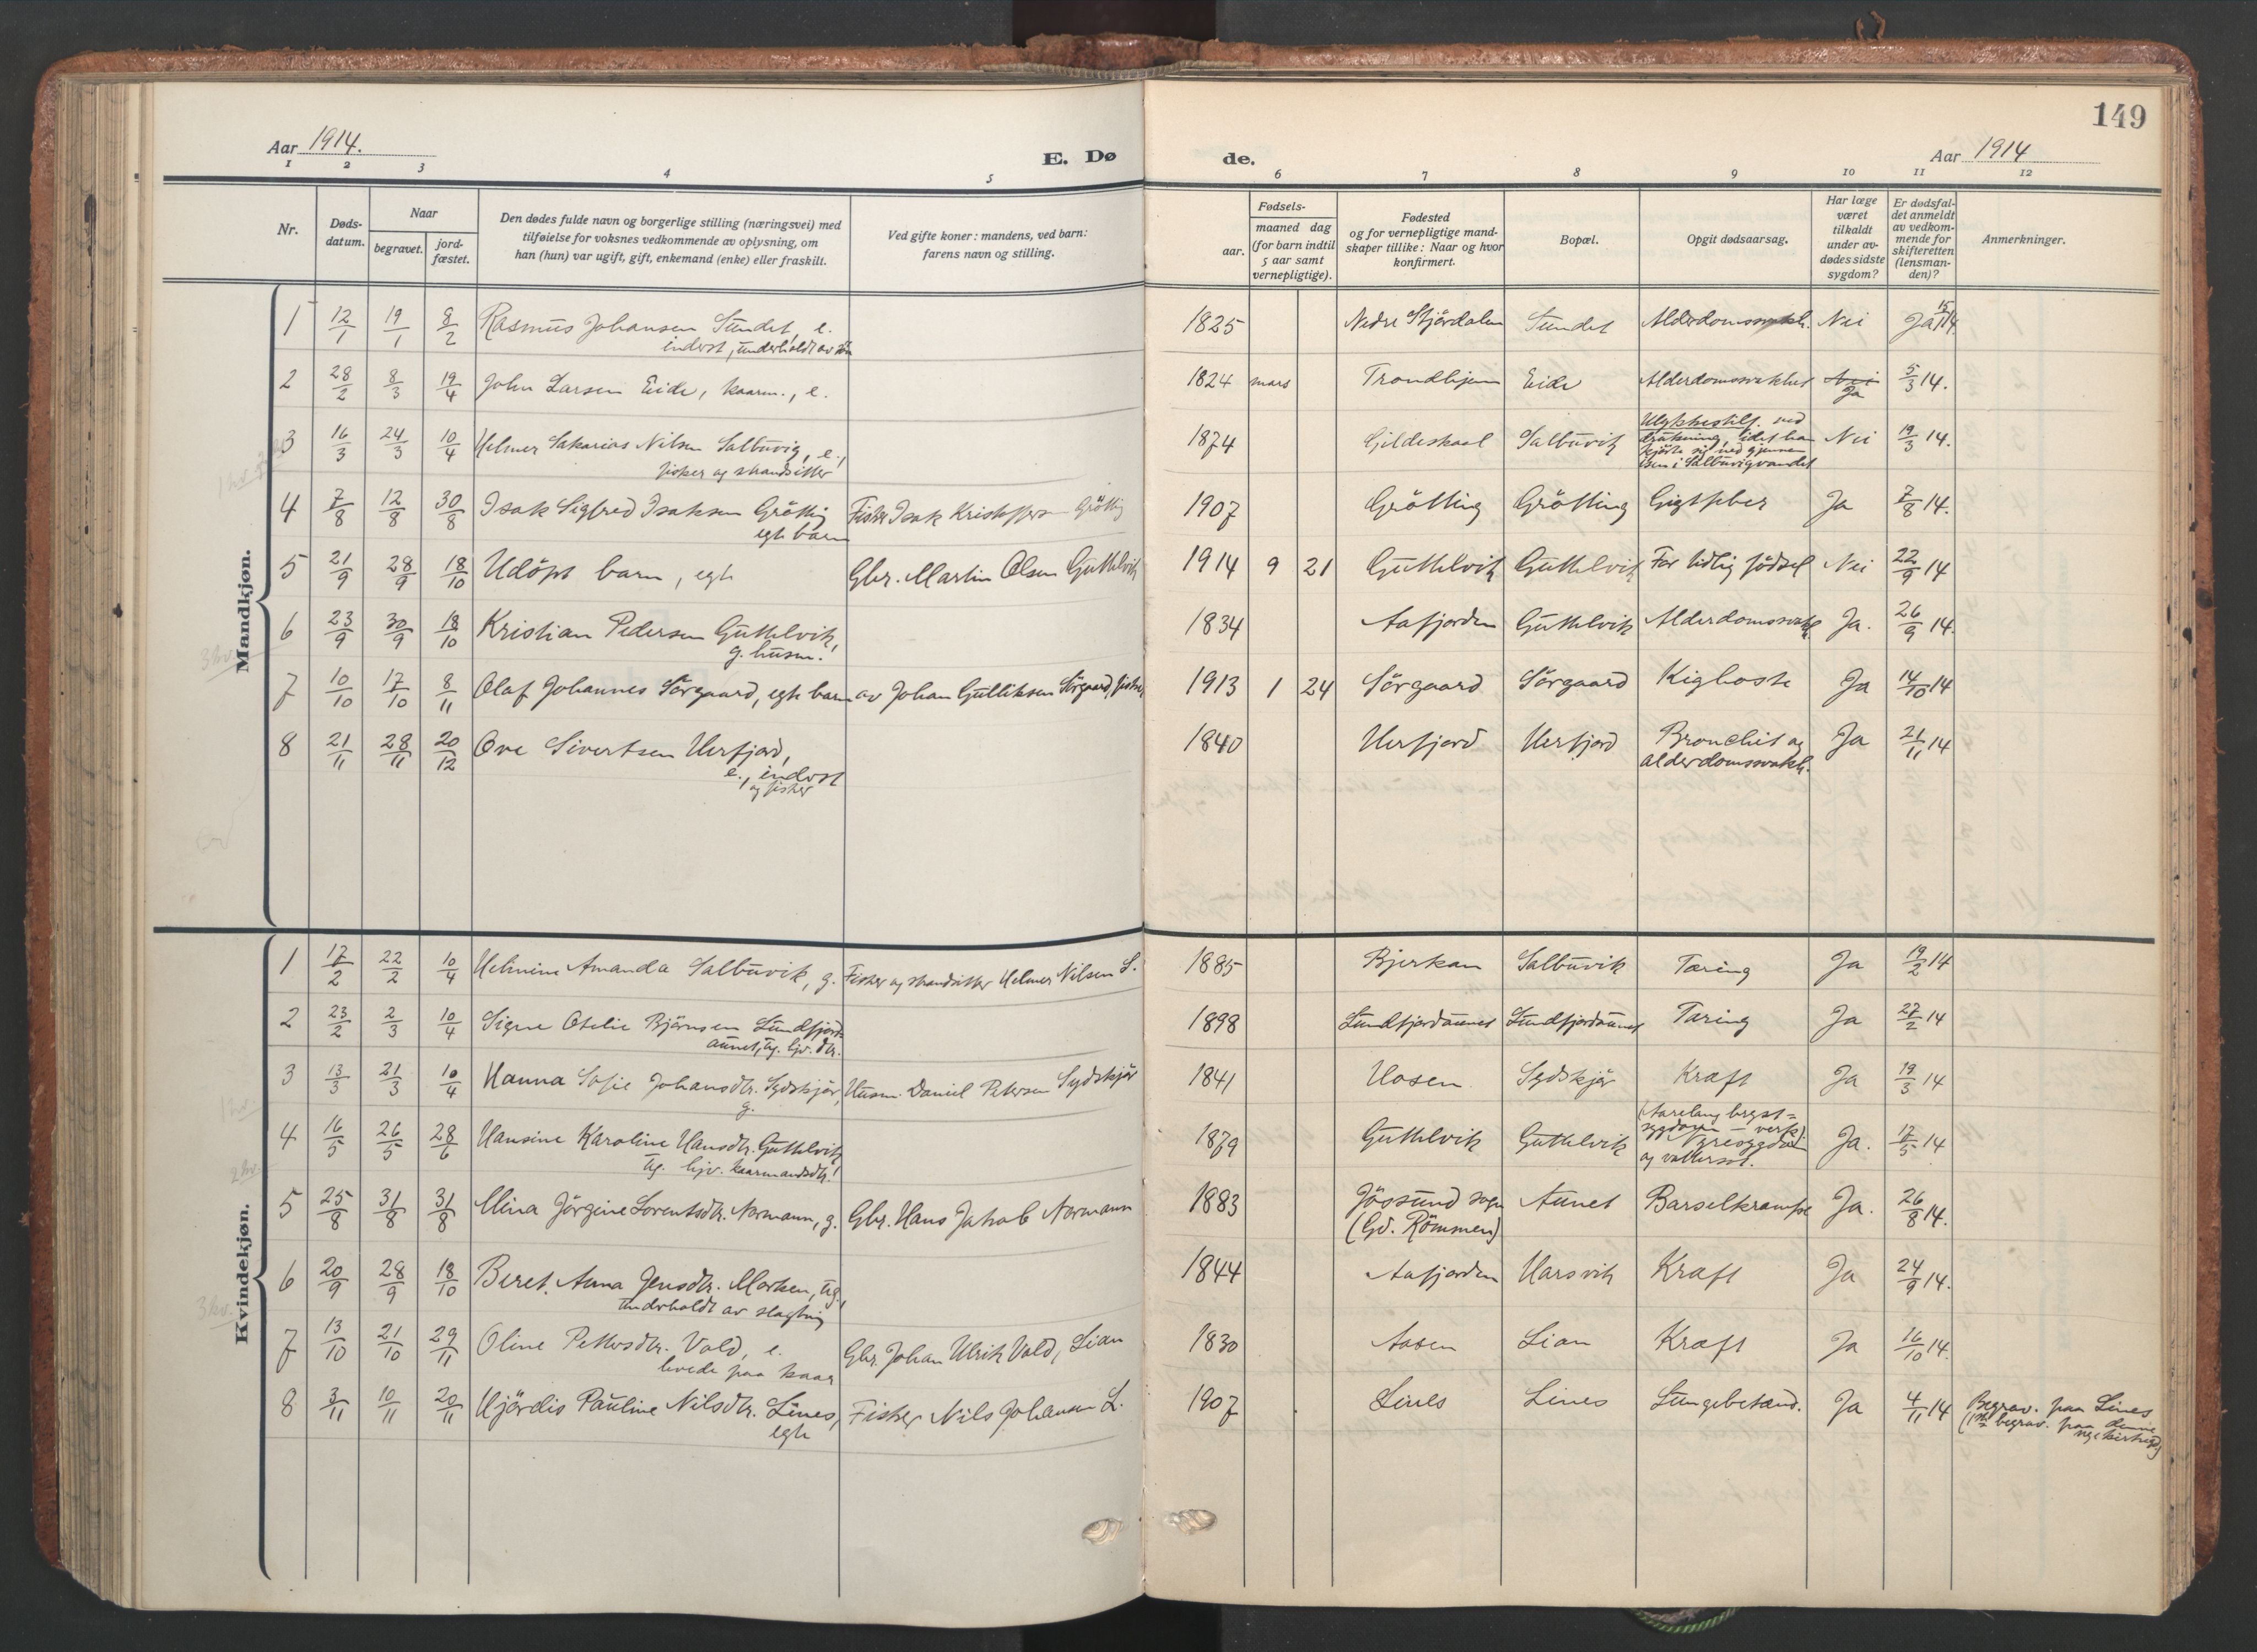 149
Aar 1914.
E. Dø
de.
Aar 1914
1 2 3 4 5 6 7 8 9 10 11 12
Nr.
Døds-
datum.
Naar
begravet.
jord-
fæstet.
Den dødes fulde navn og borgerlige stilling (næringsvei) med
tilføielse for voksnes vedkommende av oplysning, om
han (hun) var ugift, gift, enkemand (enke) eller fraskilt.
Ved gifte koner: mandens, ved barn:
farens navn og stilling.
Fødsels-
aar.
maaned dag
(for barn indtil
5 aar samt
vernepligtige).
Fødested
og for vernepligtige mand-
skaper tillike: Naar og hvor
konfirmert.
Bopæl.
Opgit dødsaarsag.
Har læge
været
tilkaldt
under av-
dødes sidste
sygdom?
Er dødsfal-
det anmeldt
av vedkom-
mende for
skifteretten
(lensman-
den)?
Anmerkninger.
Mandkjøn.
1 12/1 19/1 8/2 Rasmus Johansen Sundet, e. 1825 Nedre Stjördalen Sundet Alderdomssvakh. Nei Ja 15/1 14
inderst, underholdt av
2 28/2 8/3 19/4 John Larsen Eide, kaarm., e. 1824 mars Trondhjem Eide Alderdomssvakhet Nei 5/3 14.
Ja
3 16/3 24/3 10/4 Helmer Sakarias Nilsen Salbuvig, e., 1874 Gildeskaal Salbuvik Ulykkestilf. ved Nei 19/3 14.
fisker og strandsitter
drukning, idet han
kjörte sig ned gjennem
isen i Salbuvigvandet
4 7/8 12/8 30/8 Isak Sigfred Isaksen Gröttig Fisker Isak Kristoffersen Gröttig 1907 Grötting Grötting Gigtfeber Ja 7/8 14.
egte barn
5 21/9 28/9 18/10 Udöpt barn, egte Gbr. Martin Olsen Guttelvik 1914 9 21 Guttelvik Guttelvik For tidlig födsel Nei 22/9 14
6 23/9 30/9 18/10 Kristian Pedersen Guttelvik, 1834 Aafjorden Guttelvik Alderdomssvakh. Ja. 26/9 14.
g. husm.
7 10/10 17/10 8/11 Olaf Johannes Sörgaard, egte barn av Johan Gulliksen Sörgaard, fisker 1913 1 24 Sörgaard Sörgaard Kighoste Ja 14/10 14
8 21/11 28/11 20/12 Ove Sivertsen Herfjord, 1840 Herfjord Herfjord Bronchit og Ja 21/11 14
e., inderst
og fisker
alderdomssvakh.
Kvindekjøn.
1 17/2 22/2 10/4 Helmine Amanda Salbuvik, g. Fisker og strandsitter Helmer Nilsen S. 1885 Bjerkan Salbuvik Tæring Ja 19/2 14
2 23/2 2/3 10/4 Signe Otelie Björnsen Sundfjord- 1898 Sundfjordaunet Sundfjordaunet Tæring Ja 27/2 14
aunet, ug. hjv. dtr.
3 13/3 21/3 10/4 Hanna Sofie Johansdtr. Sydskjör, Husm. Daniel Petersen Sydskjör 1841 Hosen Sydskjör Kræft Ja 19/3 14
g.
4 16/5 26/5 28/6 Hansine Karoline Hansdtr. Guttelvik 1879 Guttelvik Guttelvik (Aarelang bryst= Ja. 17/5 14
ug. hjv. kaarmandsdtr.
sygdom – verk)
Nyresygdom
og vattersot.
5 25/8 31/8 31/8 Mina Jörgine Lorentsdtr. Normann, g. Gbr. Hans Jakob Normann 1883 Jössund sogn Aunet Barselkrampe Ja. 26/8 14.
(Gd. Römmen)
6 20/9 28/9 18/10 Beret Anna Jensdtr. Morken, ug., 1844 Aafjorden Harsvik Kræft Ja 24/9 14.
underholdt av slegtning
7 13/10 21/10 29/11 Oline Pettersdtr. Vold, e. Gbr. Johan Ulrik Vold, Lian 1830 Aasen Lian Kræft Ja 16/10 14.
levede paa kaar
8 3/11 10/11 20/11 Hjördis Pauline Nilsdtr. Lines, Fisker Nils Johansen L. 1907 Lines Lines Lungebetænd. Ja 4/11 14 Begrav. paa Lines
egte
(1ste begrav. paa denne
nye kirkegd)